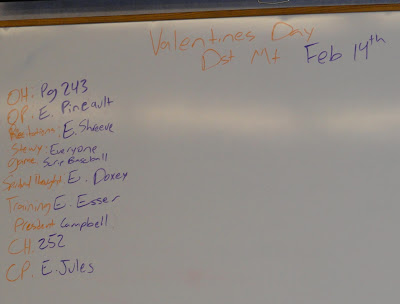 Valentines Day
Dst Mt Feb 14th
OH: Pg 243
OP: E. Pineault
Recitations: E. Shreeve
Story: Everyone
Game: Sure Baseball
Spiritual thought: E. Doxey
Training E. Esser
President Campbell
CH: 252
CP: E. Jules